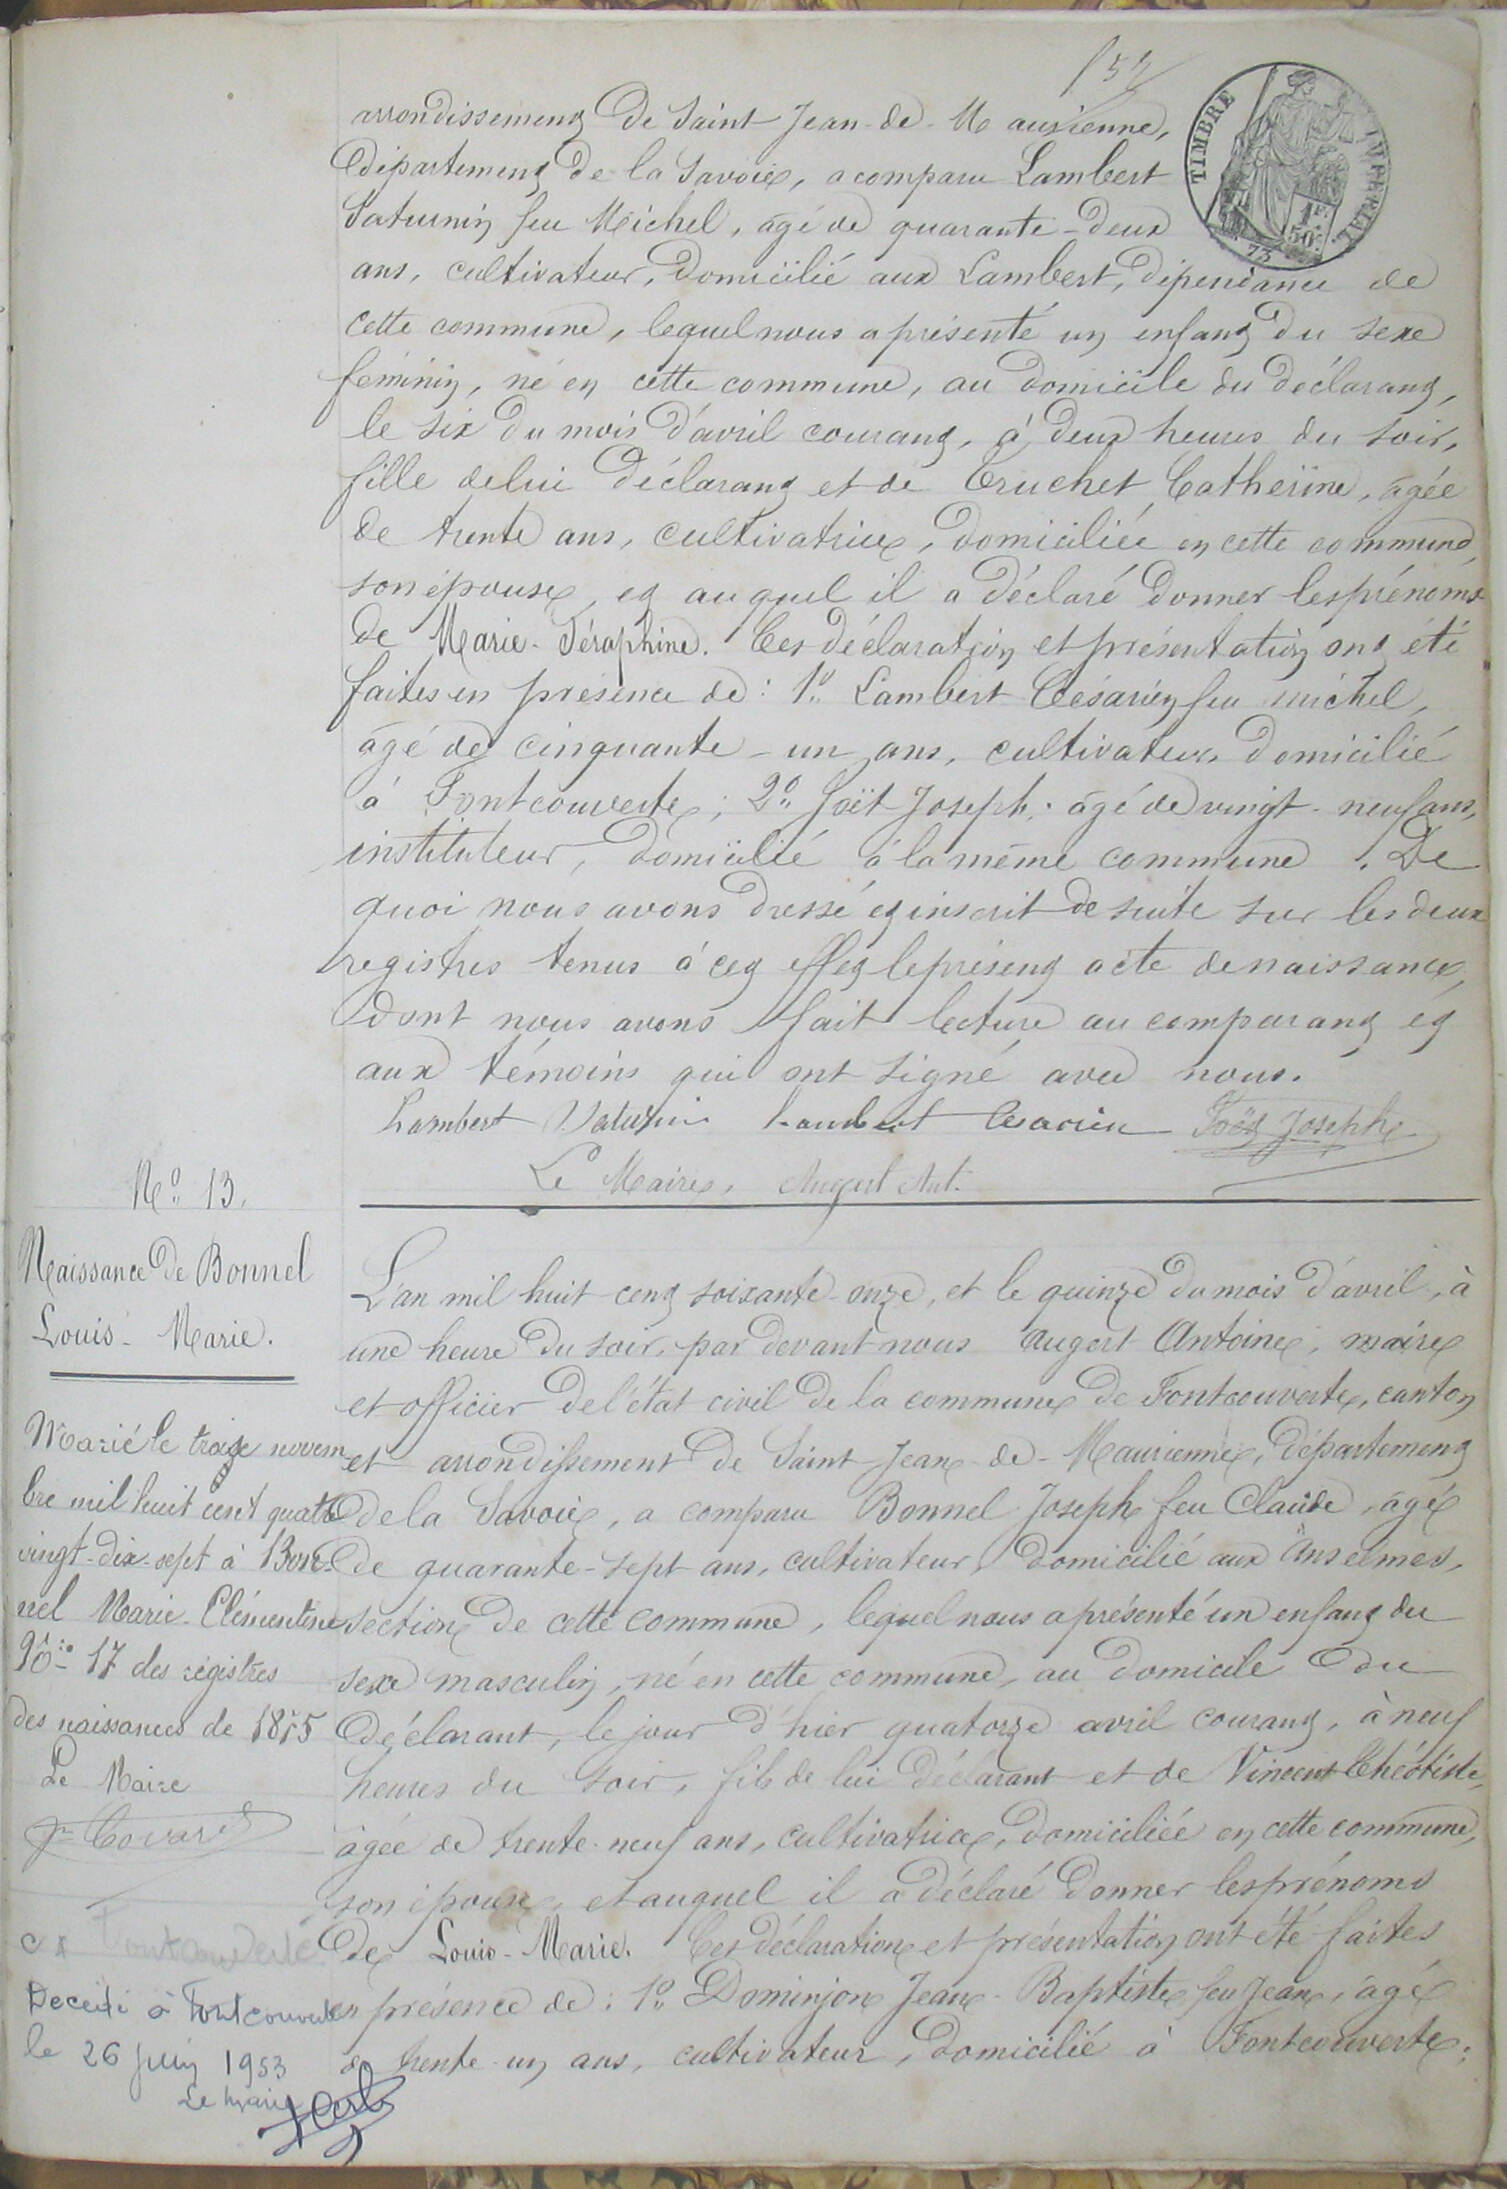 TIMBRE IMPERIAL
1F. 50c.
73
arrondissement de Saint Jean-de-Maurienne,
département de la Savoie, a comparu Lambert
Saturnin feu Michel, âgé de quarante-deux
ans, cultivateur, domicilié aux Lambert, dépendance de
cette commune, lequel nous a présenté un enfant du sexe
féminin, né en cette commune, au domicile du déclarant,
le six du mois d'avril courant, à deux heures du soir,
fille de lui déclarant et de Truchet Catherine, âgée
de trente ans, cultivatrice, domiciliée en cette commune,
son épouse, et auquel il a déclaré donner les prénoms
de Marie-Séraphine. Ces déclaration et présentation ont été
faites en présence de: 1º Lambert Césarien feu Michel,
âgé de cinquante-un ans, cultivateur, domicilié
à Fontcouverte; 2º Joët Joseph, âgé de vingt-neuf ans,
instituteur, domicilié à la même commune. De
quoi nous avons dressé et inscrit de suite sur les deux
registres tenus à cet effet le présent acte de naissance,
dont nous avons fait lecture au comparant et
aux témoins qui ont signé avec nous.
Lambert Saturnin Lambert Césarien Joët Joseph
Le Maire, Augert Ant.
Nº 13.
Naissance de Bonnel
Louis-Marie.
Marié le treize novem
bre mil huit cent quatre
vingt-dix-sept à Bon-
nel Marie-Clémentine
Nº 17 des régistres
des naissances de 1875
Le Maire
Covarel
Fontcouverte
Décédé à Fontcouverte
le 26 juin 1953
Le maire
L'an mil huit cent soixante-onze, et le quinze du mois d'avril, à
une heure du soir, par devant nous Augert Antoine, maire
et officier de l'état civil de la commune de Fontcouverte, canton
et arrondissement de Saint Jean-de-Maurienne, département
de la Savoie, a comparu Bonnel Joseph feu Claude, âgé
de quarante-sept ans, cultivateur, domicilié aux Anselmes,
section de cette commune, lequel nous a présenté un enfant du
sexe masculin, né en cette commune, au domicile du
déclarant, le jour d'hier quatorze avril courant, à neuf
heures du soir, fils de lui déclarant et de Vincent Théotiste,
âgée de trente-neuf ans, cultivatrice, domiciliée en cette commune,
son épouse, et auquel il a déclaré donner les prénoms
de Louis-Marie. Ces déclaration et présentation ont été faites
en présence de: 1º Dominjon Jean-Baptiste feu Jean, âgé
de trente-un ans, cultivateur, domicilié à Fontcouverte;